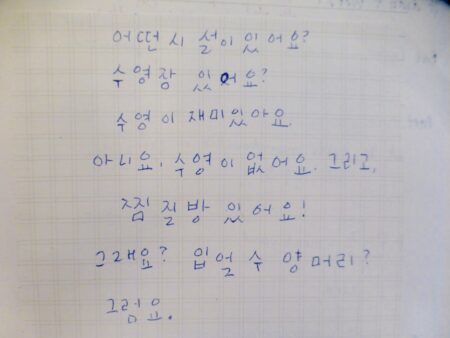 어떤 시설이 있어요?
수영장 있어요?
수영이 재미있아요.
아니요, 수영이 없어요. 그리고,
찜질방 있어요!
그래요? 입얼 수 양머리?
그럼요.